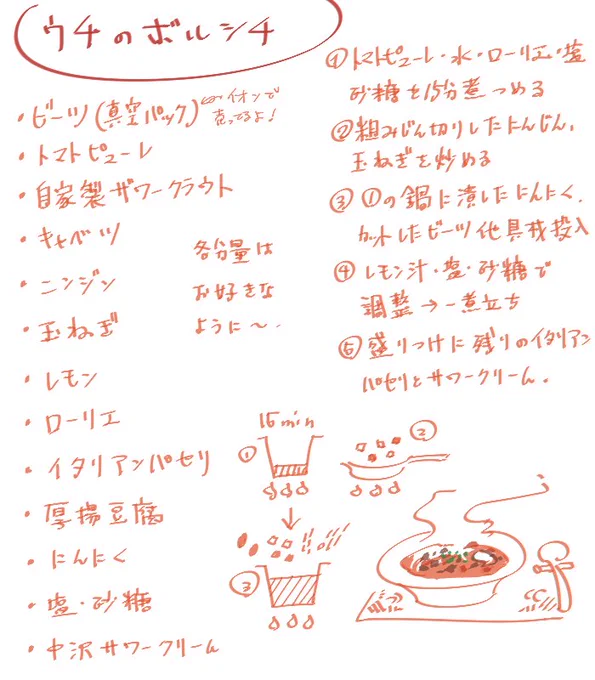 ウチのボルシチ
・ビーツ(真空パック)
イオンで
売ってるよ!
・トマトピューレ
・自家製ザワークラウト
・キャベツ
・ニンジン
・玉ねぎ
・レモン
・ローリエ
・イタリアンパセリ
・厚揚豆腐
・にんにく
・塩・砂糖
・中沢サワークリーム
各分量は
お好きな
ように〜.
①トマトピューレ・水・ローリエ・塩
砂糖を15分煮つめる
②粗みじん切りしたにんじん、
玉ねぎを炒める
③①の鍋に潰したにんにく、
カットしたビーツ他具材投入
④レモン汁・塩・砂糖で
調整→一煮立ち
⑤盛りつけに残りのイタリアン
パセリとサワークリーム.
15min
①
②
③